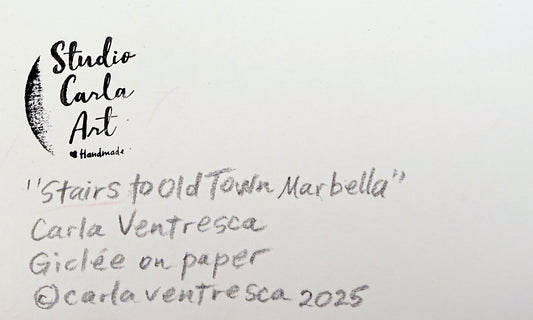 Studio
Carla
Art
Handmade
"Stairs to Old Town Marbella"
Carla Ventresca
Giclée on paper
©carlaventresca 2025